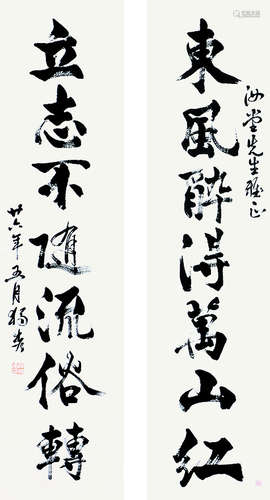 汝堂先生雅正
東風醉得萬山紅
立志不隨流俗轉
廿六年五月